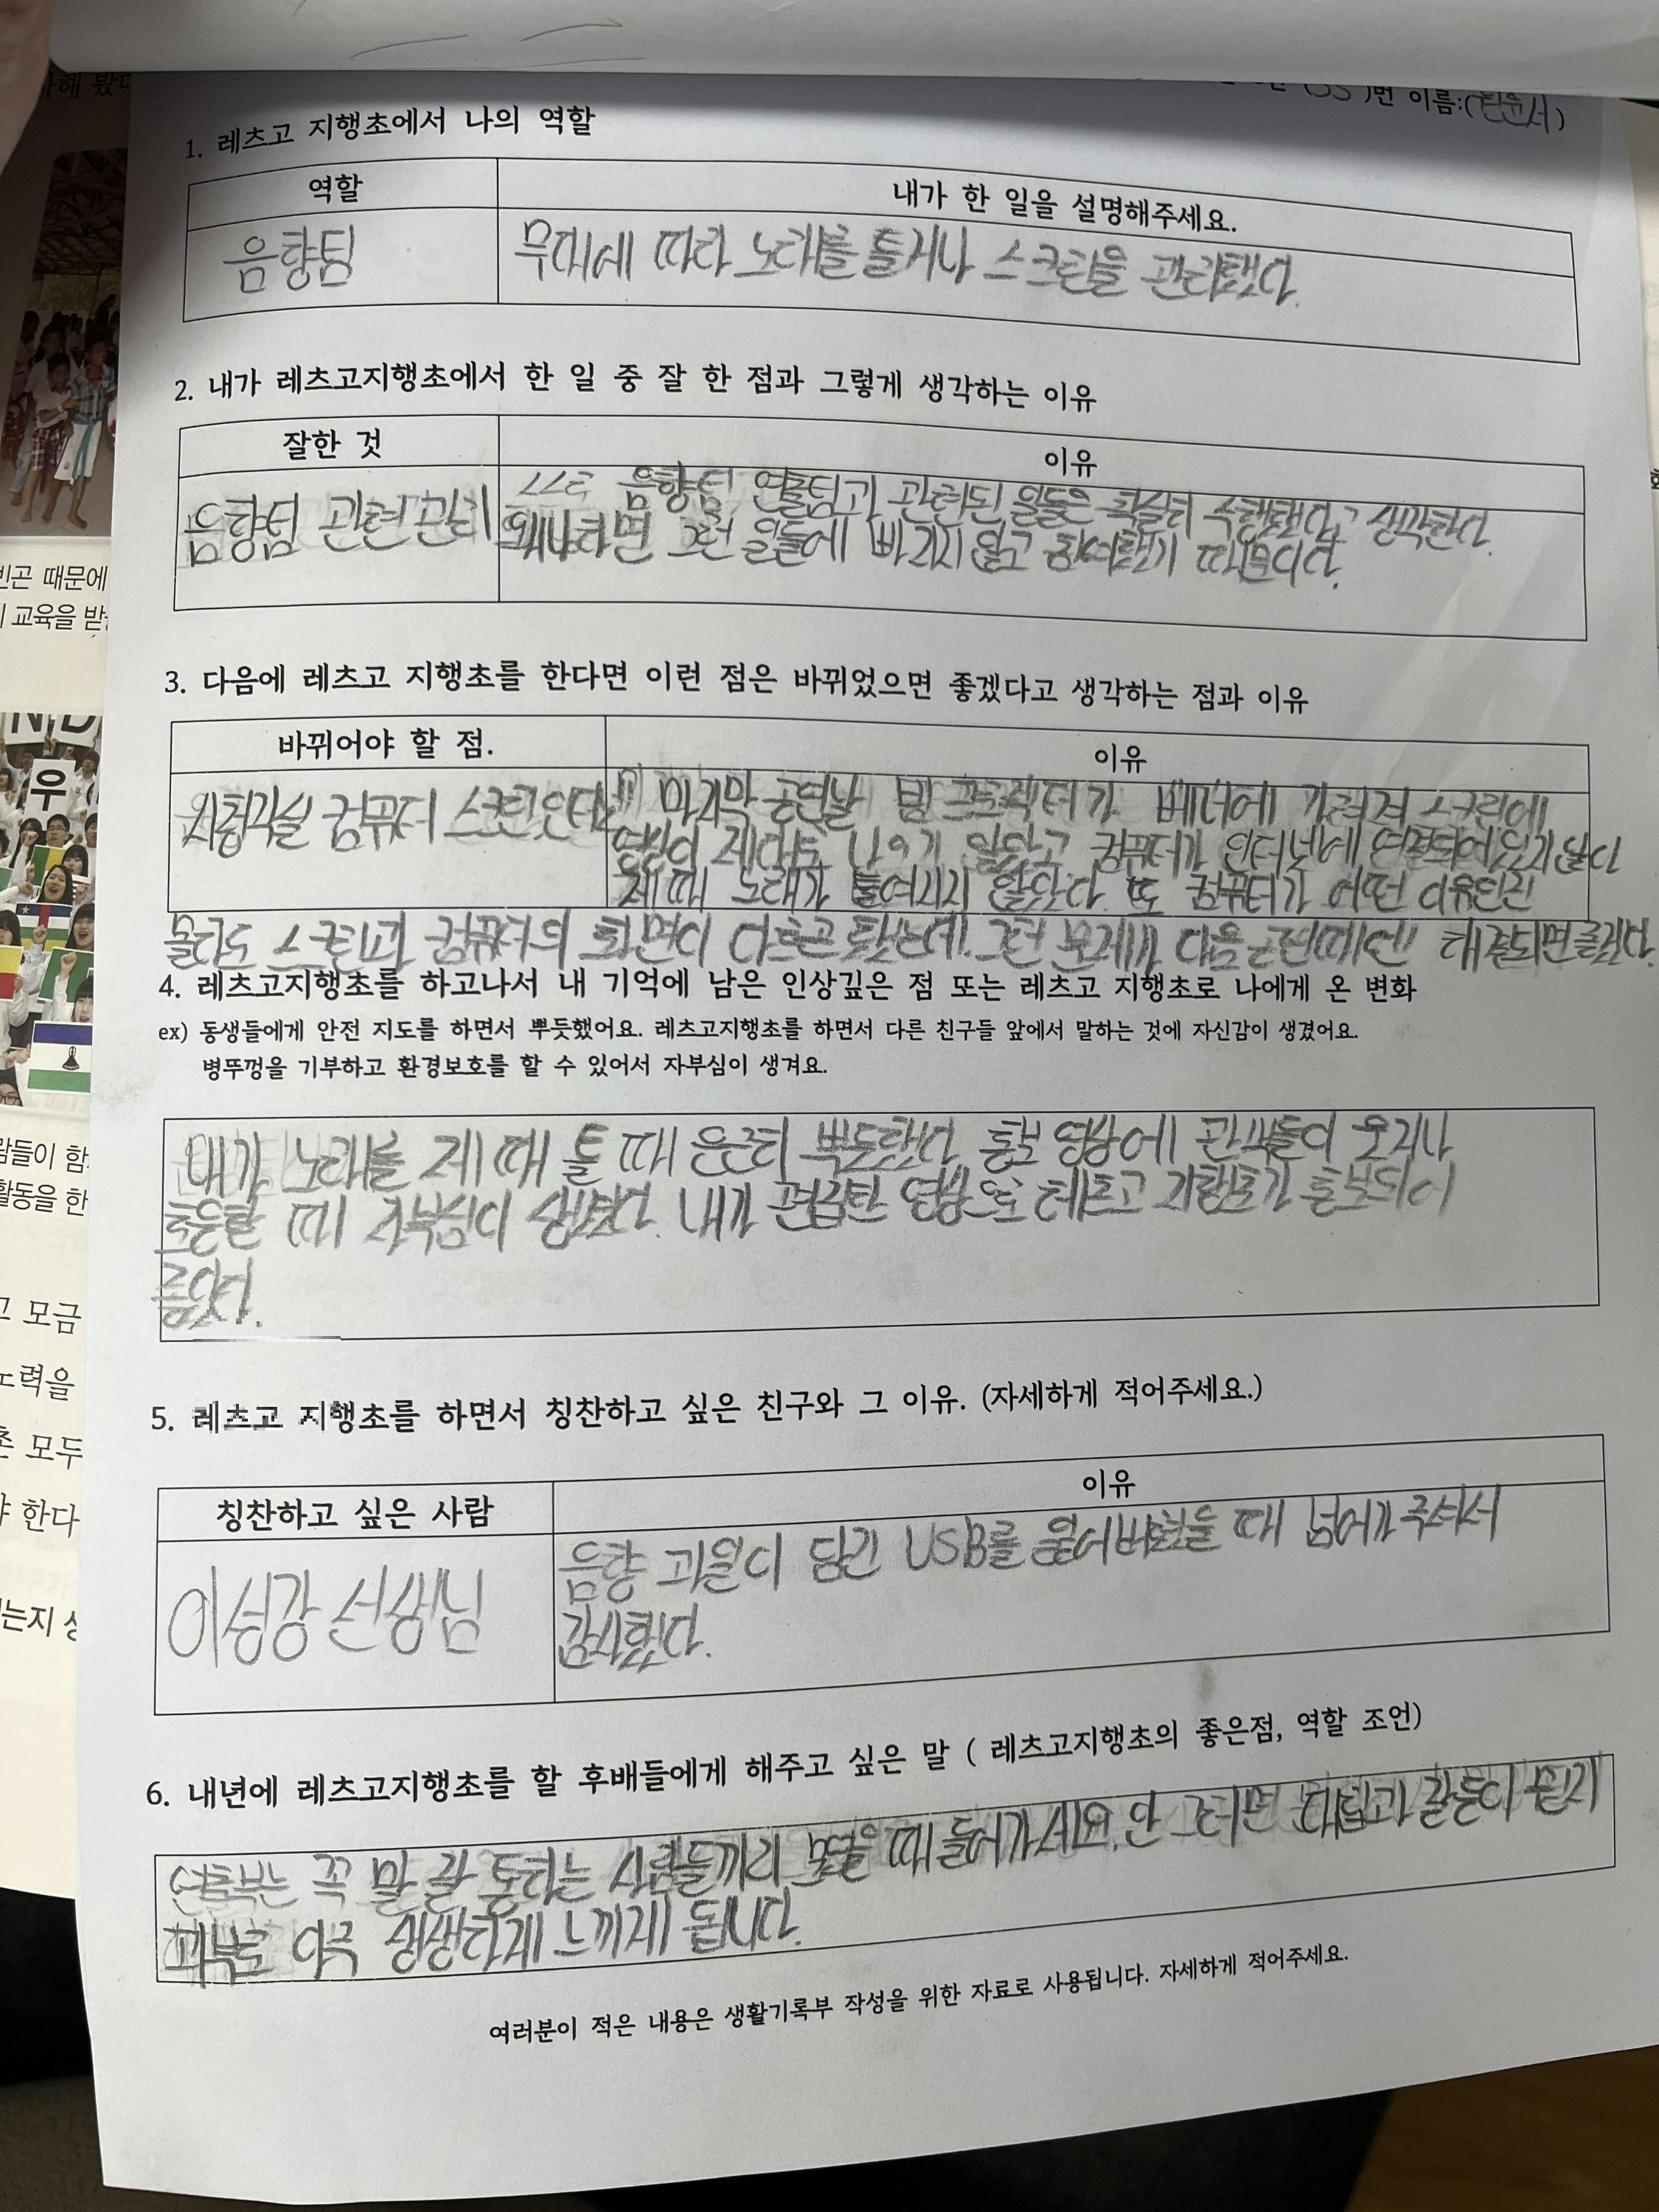 번 이름:(
1. 레츠고 지행초에서 나의 역할
역할
내가 한 일을 설명해주세요.
음향팀
무대에 따라 노래를 틀거나 스크린을 관리했다.
2. 내가 레츠고지행초에서 한 일 중 잘 한 점과 그렇게 생각하는 이유
잘한 것
이유
음향팀 관련 관리
스스로 음향팀 연출팀과 관련된 일들은 확실히 수행했다고 생각한다.
왜냐하면 그런 일들에 빠지지 않고 참여했기 때문이다.
3. 다음에 레츠고 지행초를 한다면 이런 점은 바뀌었으면 좋겠다고 생각하는 점과 이유
바뀌어야 할 점.
이유
시청각실 컴퓨터 스크린, 인터넷
마지막 공연날 빔 프로젝터가 베너에 가려져 스크린에
영상이 제대로 나오지 않았고 컴퓨터가 인터넷에 연결되어있지 않다
제 때 노래가 틀여지지 않았다. 또 컴퓨터가 어떤 이유인진
몰라도 스크린과 컴퓨터의 화면이 다르곤 했는데. 그런 문제가 다음 공연때에는 해결되면 좋겠다.
4. 레츠고지행초를 하고나서 내 기억에 남은 인상깊은 점 또는 레츠고 지행초로 나에게 온 변화
ex) 동생들에게 안전 지도를 하면서 뿌듯했어요. 레츠고지행초를 하면서 다른 친구들 앞에서 말하는 것에 자신감이 생겼어요.
병뚜껑을 기부하고 환경보호를 할 수 있어서 자부심이 생겨요.
내가 노래를 제 때 틀 때 은근히 뿌듯했다. 홍보 영상에 관객들이 웃거나
호응할 때 자부심이 생겼다. 내가 편집한 영상으로 레츠고 지행초가 홍보되어
좋았다.
5. 레츠고 지행초를 하면서 칭찬하고 싶은 친구와 그 이유. (자세하게 적어주세요.)
칭찬하고 싶은 사람
이유
이성강 선생님
음향 파일이 담긴 USB를 잃어버렸을 때 넘어가 주셔서
감사했다.
6. 내년에 레츠고지행초를 할 후배들에게 해주고 싶은 말 ( 레츠고지행초의 좋은점, 역할 조언)
연출부는 꼭 말 잘 통하는 사람들끼리 모였을 때 들어가세요. 안 그러면 대립과 갈등이 뭔지
피부로 아주 생생하게 느끼게 됩니다.
여러분이 적은 내용은 생활기록부 작성을 위한 자료로 사용됩니다. 자세하게 적어주세요.
빈곤 때문에
교육을 받
람들이 함
활동을 한
모금
노력을
모두
한다
는지